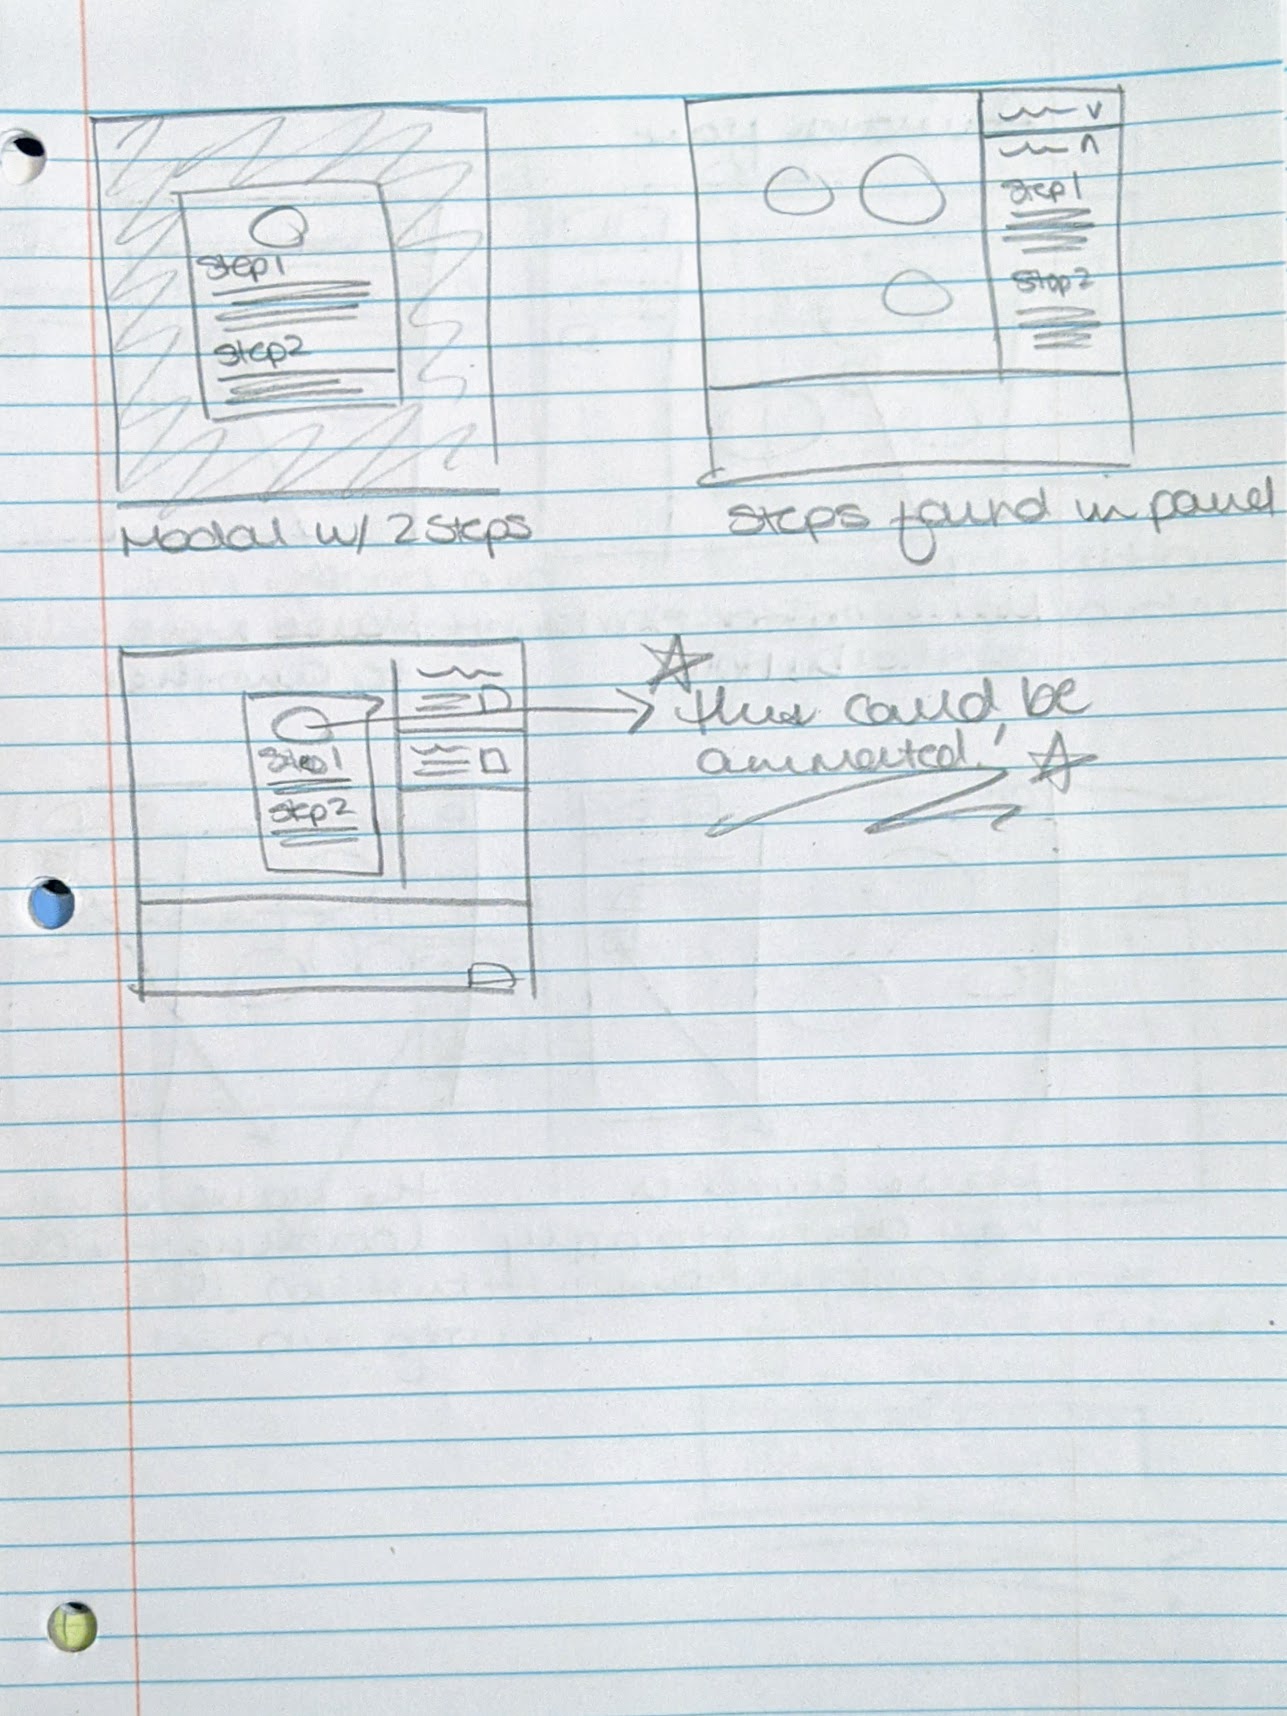 Step1
Step2
Modal w/ 2 Steps
Step1
Step2
Steps found in panel
Step1
Step2
this could be
animated!